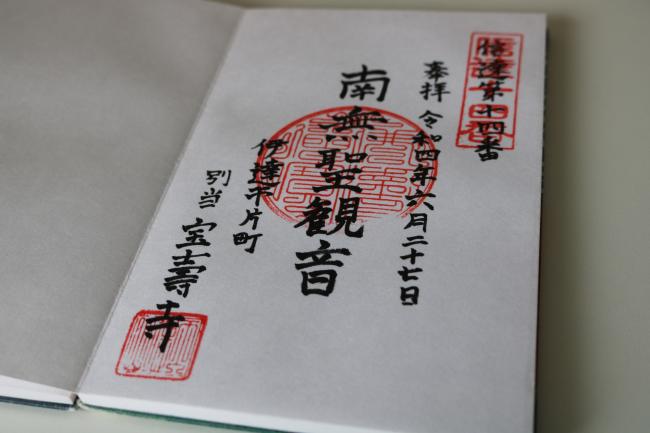 信達第十四番
奉拝 令和四年六月二十七日
南無聖観音
伊達市片町
別当 宝壽寺